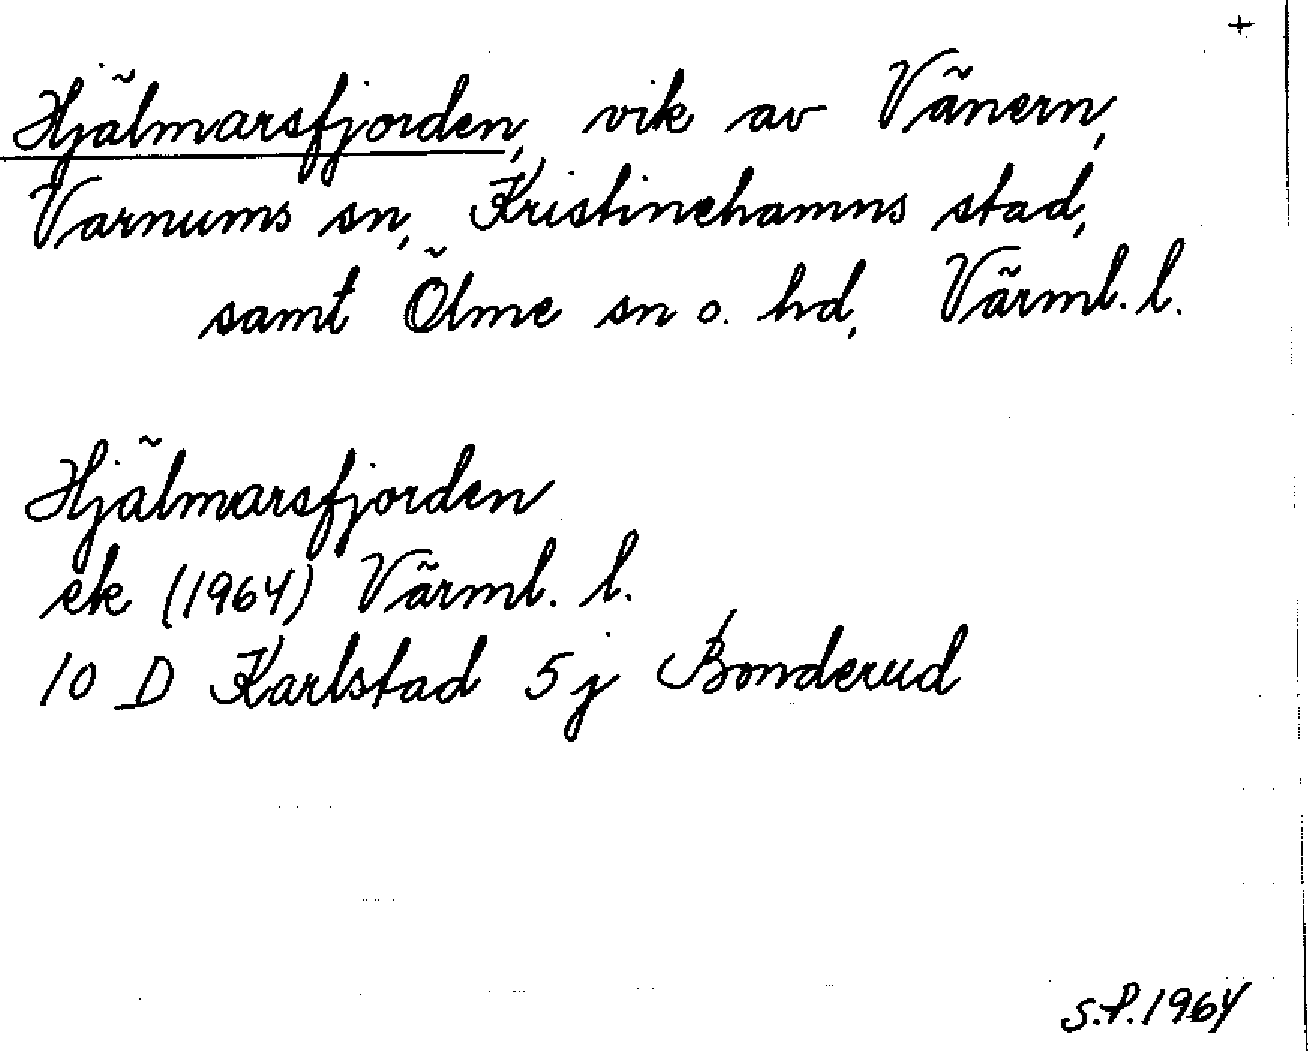 +
Hjälmarsfjorden, vik av Vänern,
Varnums sn, Kristinehamns stad,
samt Ölme sn o. hd, Värml. l.
Hjälmarsfjorden
ek (1964) Värml. l.
10 D Karlstad 5j Bonderud
S.P.1964